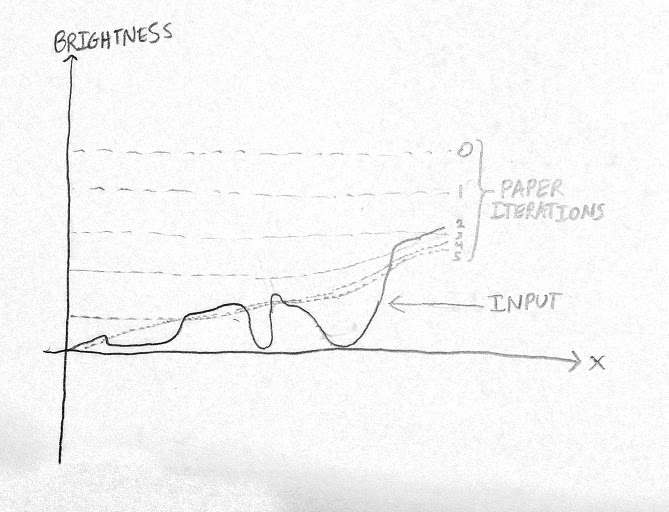 BRIGHTNESS
0
1
2
3
4
5
PAPER
ITERATIONS
INPUT
X